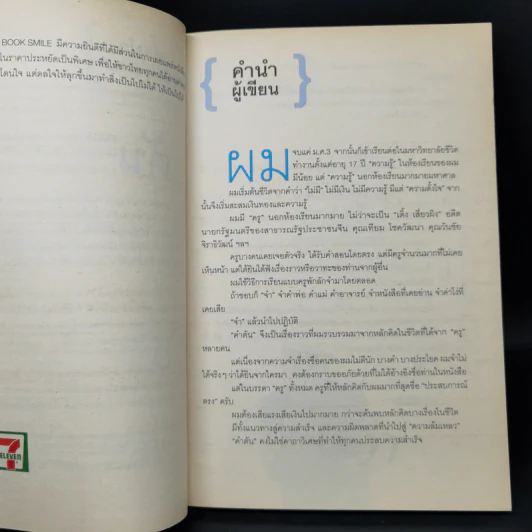 BOOK SMILE มีความยินดีที่ได้มีส่วนในการเผยแพร่
ในราคาประหยัดเป็นพิเศษ เพื่อให้ชาวไทยทุกคนได้
โดนใจ แต่ดลใจให้ลุกขึ้นมาทำสิ่งเป็นไปไม่ได้ ให้เป็นไปได้
7
ELEVEN
{ คำนำ }
ผู้เขียน
ผม จบแค่ ม.ศ.3 จากนั้นก็เข้าเรียนต่อในมหาวิทยาลัยชีวิต
ทำงานตั้งแต่อายุ 17 ปี "ความรู้" ในห้องเรียนของผม
มีน้อย แต่ "ความรู้" นอกห้องเรียนมากมายมหาศาล
ผมเริ่มต้นชีวิตจากคำว่า "ไม่มี" ไม่มีเงิน ไม่มีความรู้ มีแต่ "ความตั้งใจ" จาก
นั้นจึงเริ่มสะสมเงินทองและความรู้
ผมมี "ครู" นอกห้องเรียนมากมาย ไม่ว่าจะเป็น "เติ้ง เสี่ยวผิง" อดีต
นายกรัฐมนตรีของสาธารณรัฐประชาชนจีน คุณเทียม โชควัฒนา คุณวันชัย
จิราธิวัฒน์ ฯลฯ
ครูบางคนเคยเจอตัวจริง ได้รับคำสอนโดยตรง แต่มีครูจำนวนมากที่ไม่เคย
เห็นหน้า แต่ได้ยินได้ฟังเรื่องราวหรือวาทะของท่านจากผู้อื่น
ผมใช้วิธีการเรียนแบบครูพักลักจำมาโดยตลอด
ถ้าชอบก็ "จำ" จำคำพ่อ คำแม่ คำอาจารย์ จำหนังสือที่เคยอ่าน จำคำโง่ที่
เคยเสีย
"จำ" แล้วนำไปปฏิบัติ
"คำตัน" จึงเป็นเรื่องราวที่ผมรวบรวมมาจากหลักคิดในชีวิตที่ได้จาก "ครู"
หลายคน
แต่เนื่องจากความจำเรื่องชื่อคนของผมไม่ดีนัก บางคำ บางประโยค ผมจำไม่
ได้จริงๆ ว่าได้ยินจากใครมา คงต้องกราบขออภัยด้วยที่ไม่ได้อ้างอิงชื่อท่านในหนังสือ
แต่ในบรรดา "ครู" ทั้งหมด ครูที่ให้หลักคิดกับผมมากที่สุดชื่อ "ประสบการณ์
ตรง" ครับ
ผมต้องเสียแรงเสียเงินไปมากมาย กว่าจะค้นพบหลักคิดบางเรื่องในชีวิต
มีทั้งแนวทางสู่ความสำเร็จ และความผิดพลาดที่นำไปสู่ "ความล้มเหลว"
"คำตัน" คงไม่ใช่คาถาวิเศษที่ทำให้ทุกคนประสบความสำเร็จ